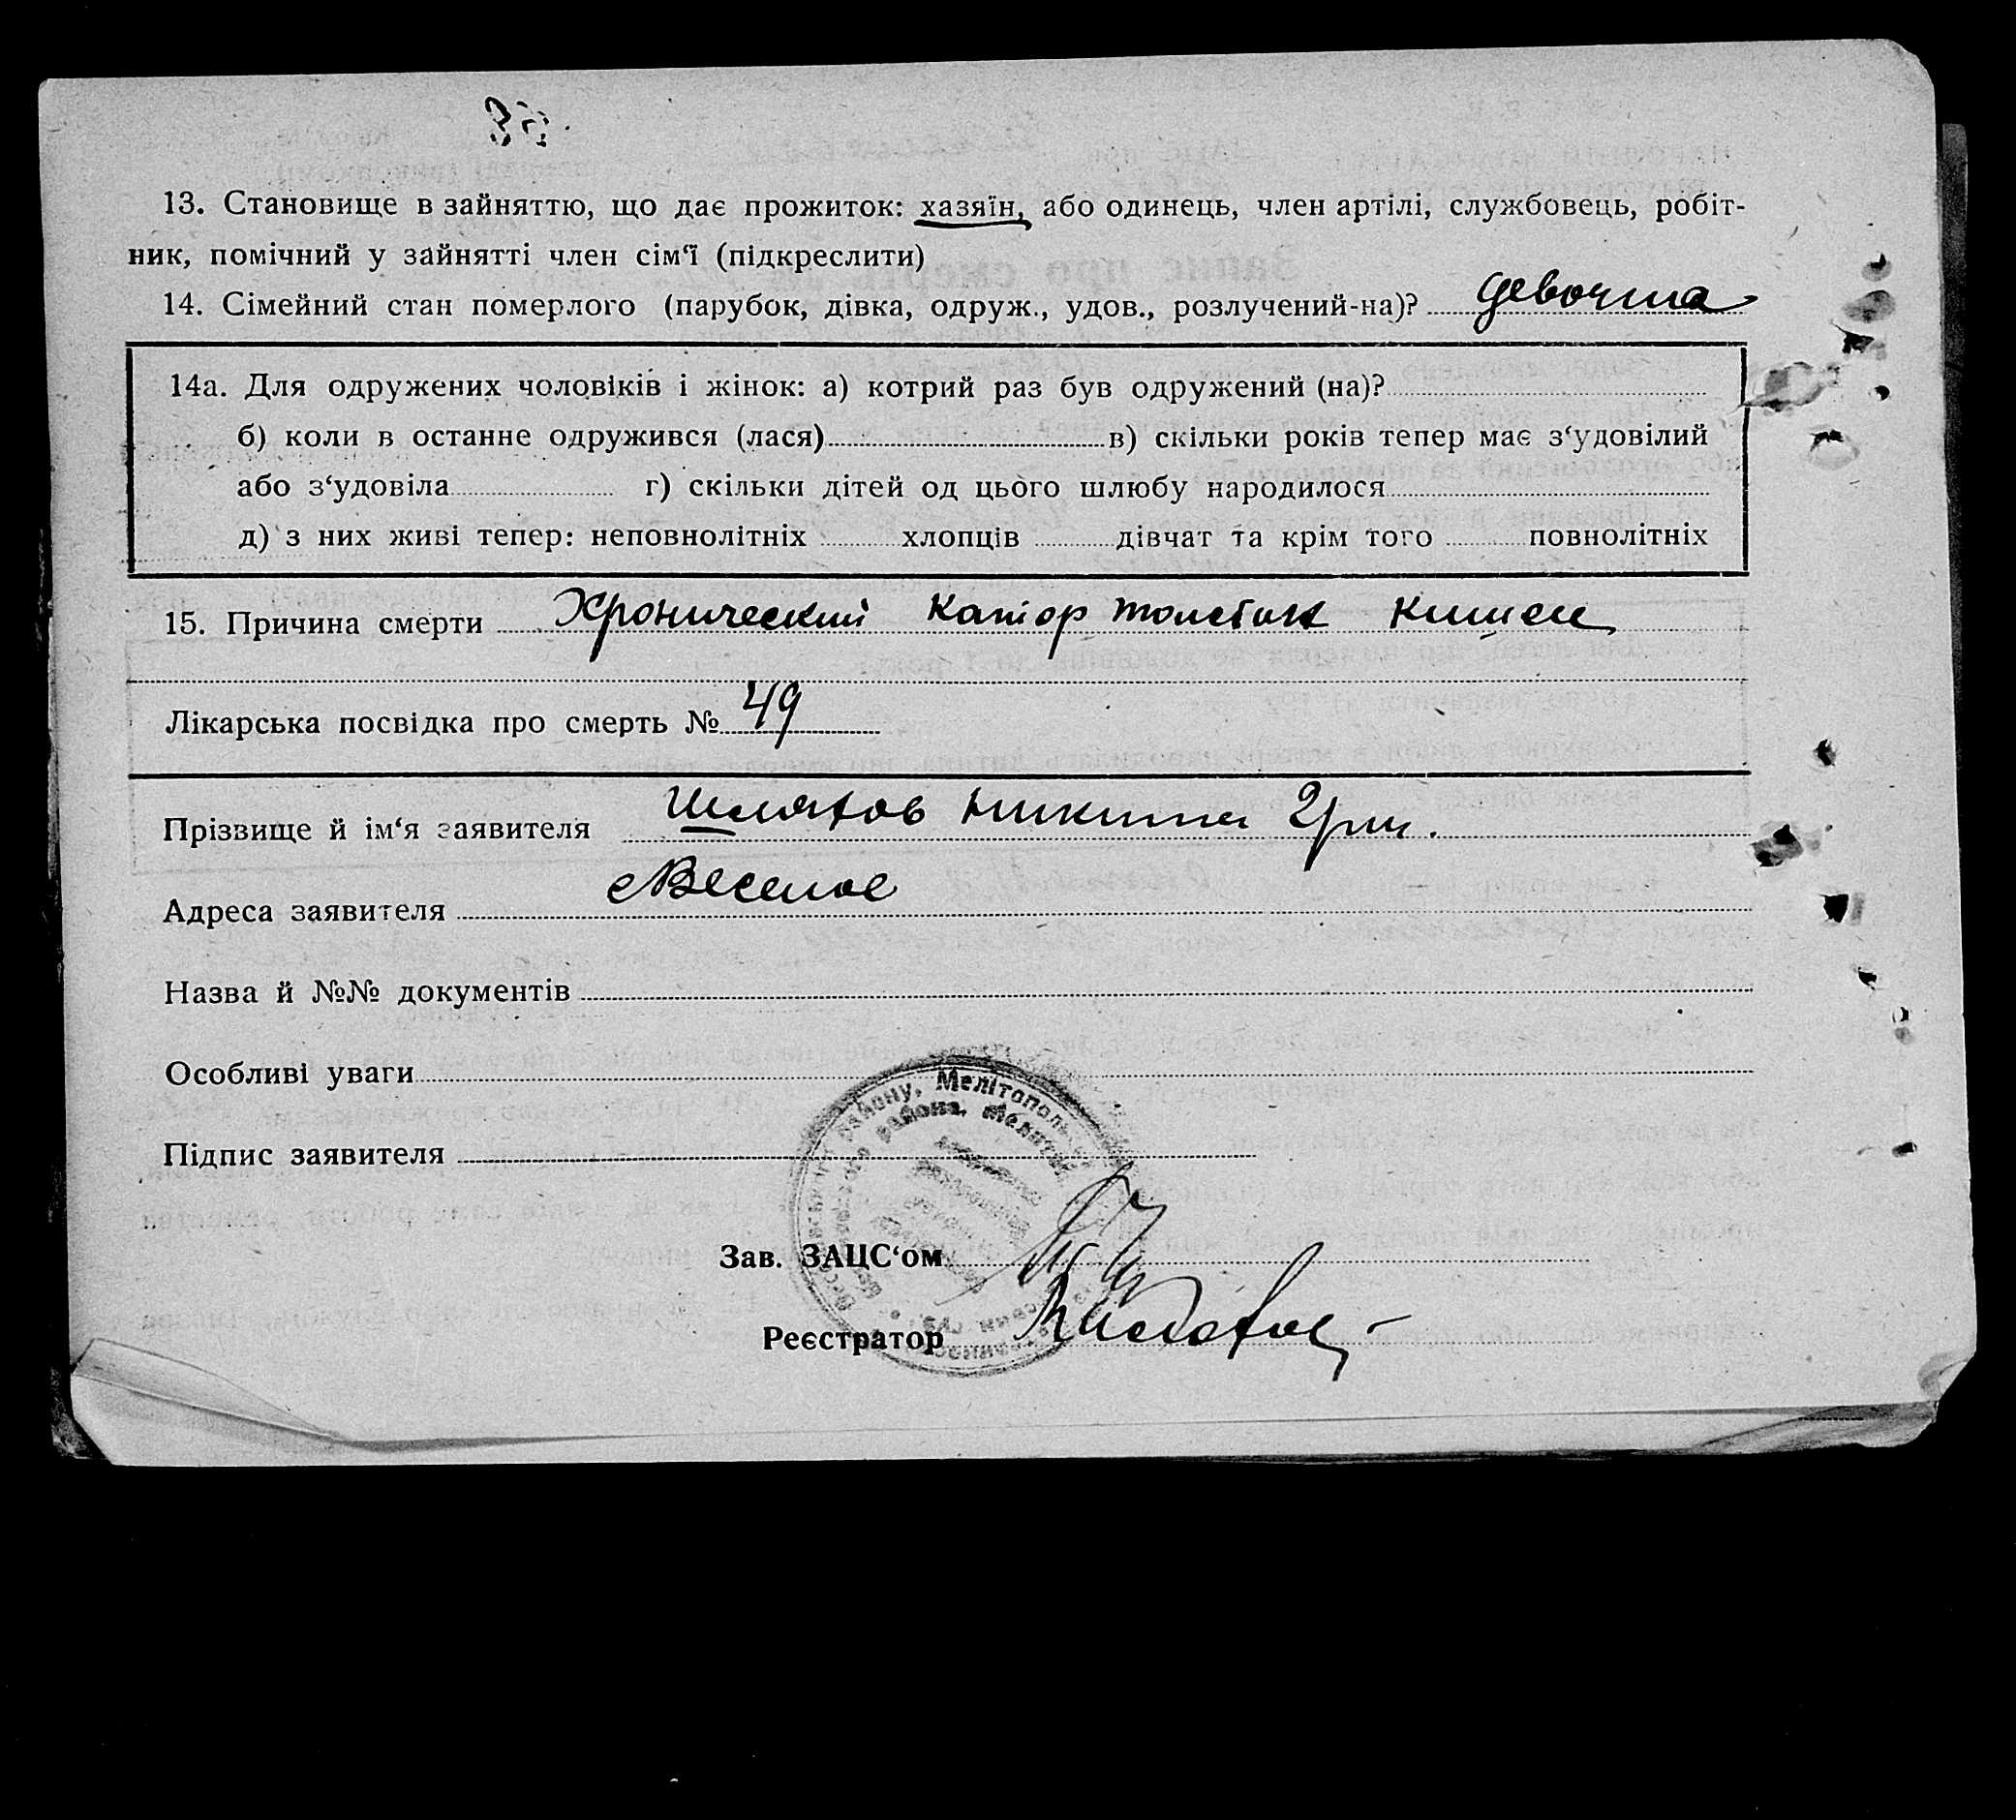 13. Становище в зайняттю, що дає прожиток: хазяїн, або одинець, член артілі, службовець, робіт-
ник, помічний у зайнятті член сім‘ї (підкреслити)
14. Сімейний стан померлого (парубок, дівка, одруж., удов., розлучений-на)? девочина
14а. Для одружених чоловіків і жінок: а) котрий раз був одружений (на)?
б) коли в останне одружився (лася) в) скільки років тепер має з‘удовілий
або з‘удовіла г) скільки дітей од цього шлюбу народилося
д) з них живі тепер: неповнолітніх хлопців дівчат та крім того повнолітніх
15. Причина смерти Хронический катор толстых кишек
Лікарська посвідка про смерть № 49
Прізвище й ім‘я заявителя Шляхов Никита Гри.
Адреса заявителя с Веселое
Назва й №№ документів
Особливі уваги
району, Мелітополь
района, Мелитоп
Підпис заявителя
Зав. ЗАЦС‘ом
Реєстратор